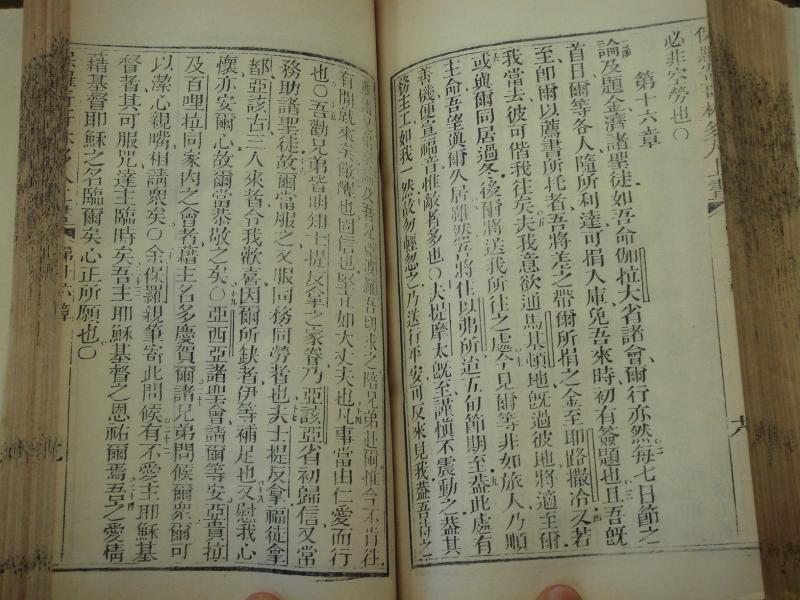 必非空勞也○
第十六章
論及題金濟諸聖徒如吾命伽拉大省諸會爾行亦然每七日節之
首日爾等各人隨所利達可捐入庫免吾來時初有簽題也且吾既
至即爾以薦書所托者吾將差之帶爾所捐之金至耶路撒冷又若
我當去彼可偕我往矣夫我意欲通馬基頓地既過彼地將適至爾
或與爾同居過冬後爾將送我所往之處今見爾等非如旅人乃順
主命吾望與爾久居雖然吾將住以弗所迨五旬節期至益此處有
善機便宣福音惟敵者多也○夫提摩太既至謹慎不震動之蓋其
務主工如我一然故勿輕忽之乃送行平安可反來見我蓋吾待之
有閒就來矣儆醒也固信也堅忍如大丈夫也凡事當由仁愛而行
也○吾勸兄弟皆明知士提反拿之家眷乃亞該亞省初歸信又常
務助諸聖徒故爾當服之又服同務同勞者也夫士提反拿福徒拿
都亞該古三人來者令我歡喜因爾所缺者伊等補足也又慰我心
懷亦安爾心故爾當恭敬之矣○亞西亞諸聖會請爾等安亞貴拉
及百哩拉同家內之會者藉主名多慶賀爾諸兄弟問候爾眾爾可
以潔心親嘴相請眾矣○余保羅親筆寄此問候有不愛主耶穌基
督者其可服咒達主臨時矣吾主耶穌基督之恩祐爾焉吾之愛情
藉基督耶穌之名臨爾矣心正所願也○